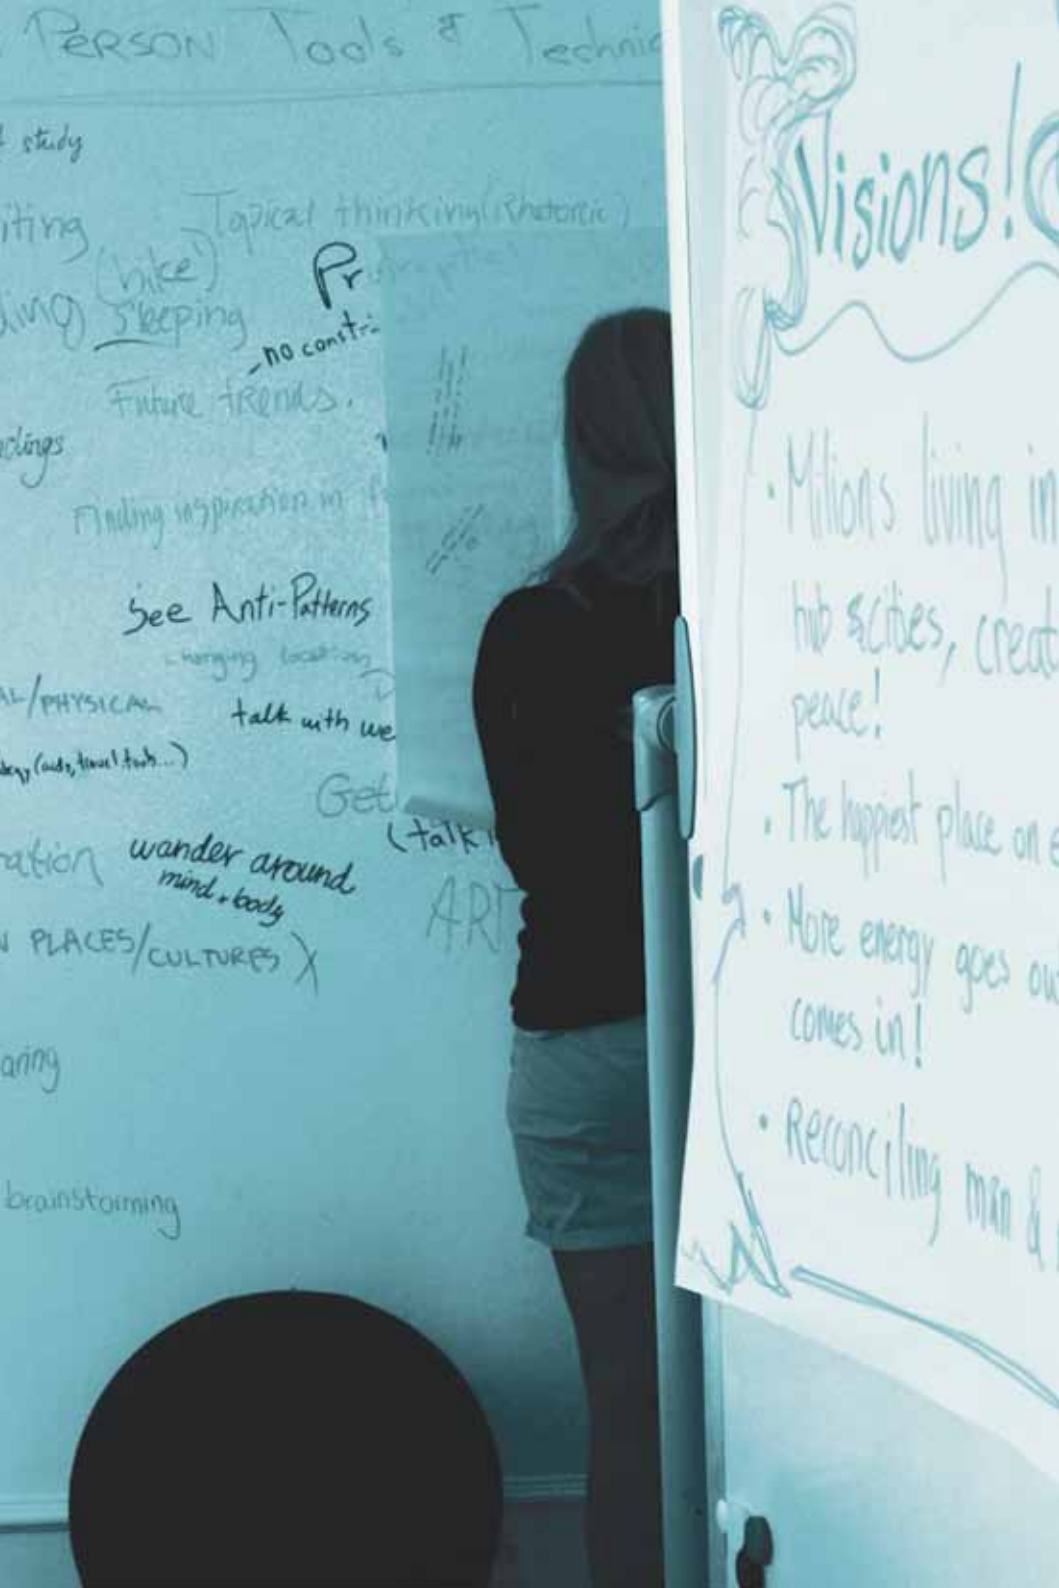 PERSON Tools & Technic
study
iting
Topical thinking (Rhetoric)
(hike)
Pr
ding sleeping
- no constri
Future trends.
Finding inspiration in
See Anti-Patterns
changing location
AL/PHYSICAL
talk with we
Get
(talk
ration
wander around
mind + body
ART
PLACES/CULTURES)
aring
brainstorming
Visions!
• Milions living in
hub & cities, creat
peace!
• The happiest place on e
• More energy goes ou
comes in!
• Reconciling man &